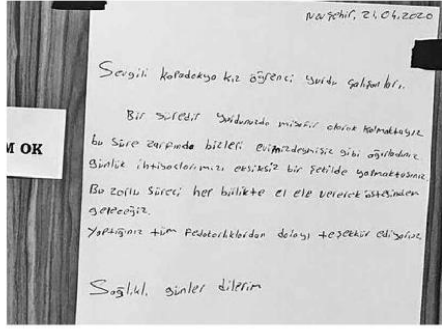 Nevşehir, 21.04.2020
Sevgili Kapadokya kız öğrenci yurdu çalışanları,
Bir süredir yurdunuzda misafir olarak kalmaktayız
bu süre zarfında bizleri evimizdeymişiz gibi ağırladınız
Günlük ihtiyaçlarımızı eksiksiz bir şekilde yapmaktasınız
Bu zorlu süreci hep birlikte el ele vererek üstesinden
geleceğiz.
Yaptığınız tüm fedakarlıklardan dolayı teşekkür ediyoruz
Sağlıklı günler dilerim
M OK